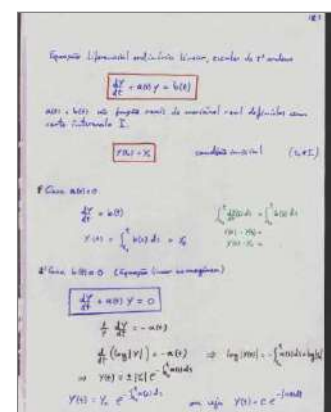 Equação diferencial ordinária linear, escalar de 1ª ordem
dy/dt + a(t) y = b(t)
a(t) e b(t) são funções reais de variável real definidas num
certo intervalo I.
y(t₀) = y₀ condição inicial (t₀ ∈ I)
1º Caso a(t) = 0
dy/dt = b(t)
y(t) = ∫ b(s) ds + y₀
2º Caso b(t) = 0 (Equação linear homogénea)
dy/dt + a(t) y = 0
1/y dy/dt = - a(t)
d/dt (log|y|) = - a(t) ⇒ log|y(t)| = -∫ a(s) ds + log|y₀|
ou seja y(t) = c e^{-∫a(t)dt}